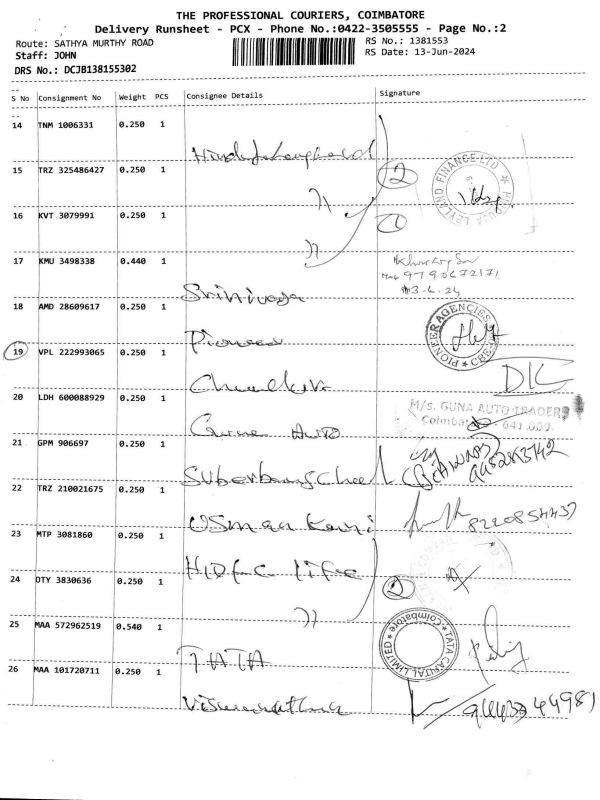 THE PROFESSIONAL COURIERS, COIMBATORE
Delivery Runsheet - PCX - Phone No.:0422-3505555 - Page No.:2
Route: SATHYA MURTHY ROAD
RS No.: 1381553
Staff: JOHN
RS Date: 13-Jun-2024
DRS No.: DCJB138155302
S No Consignment No Weight PCS Consignee Details Signature
14 TNM 1006331 0.250 1
15 TRZ 325486427 0.250 1 2
HINDUJA LEYLAND FINANCE LTD
16 KVT 3079991 0.250 1 1
17 KMU 3498338 0.440 1 Srinivasa
9790672171
13-6-24
18 AMD 28609617 0.250 1 Pioneer
PIONEER AGENCIES CBE
19 VPL 222993065 0.250 1
20 LDH 600088929 0.250 1 Guna Auto
M/s. GUNA AUTO TRADERS
Coimbatore - 641 009.
21 GPM 906697 0.250 1
22 TRZ 210021675 0.250 1 Usman Kani 8220854437
23 MTP 3081860 0.250 1 HDFC life
24 OTY 3830636 0.250 1 2
25 MAA 572962519 0.540 1 TATA
TATA CAPITAL LIMITED Coimbatore
26 MAA 101720711 0.250 1 Viswanathan